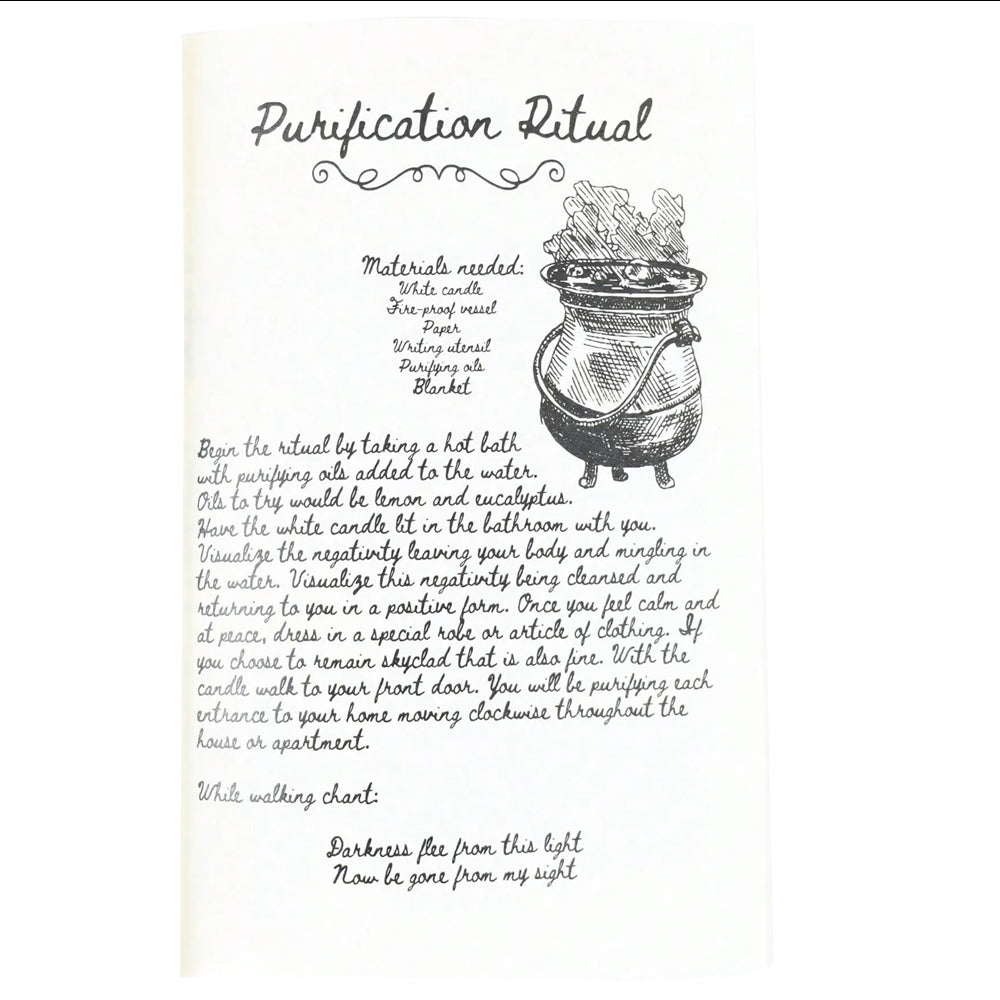 Purification Ritual
Materials needed:
White candle
Fire-proof vessel
Paper
Writing utensil
Purifying oils
Blanket
Begin the ritual by taking a hot bath
with purifying oils added to the water.
Oils to try would be lemon and eucalyptus.
Have the white candle lit in the bathroom with you.
Visualize the negativity leaving your body and mingling in
the water. Visualize this negativity being cleansed and
returning to you in a positive form. Once you feel calm and
at peace, dress in a special robe or article of clothing. If
you choose to remain skyclad that is also fine. With the
candle walk to your front door. You will be purifying each
entrance to your home moving clockwise throughout the
house or apartment.
While walking chant:
Darkness flee from this light
Now be gone from my sight